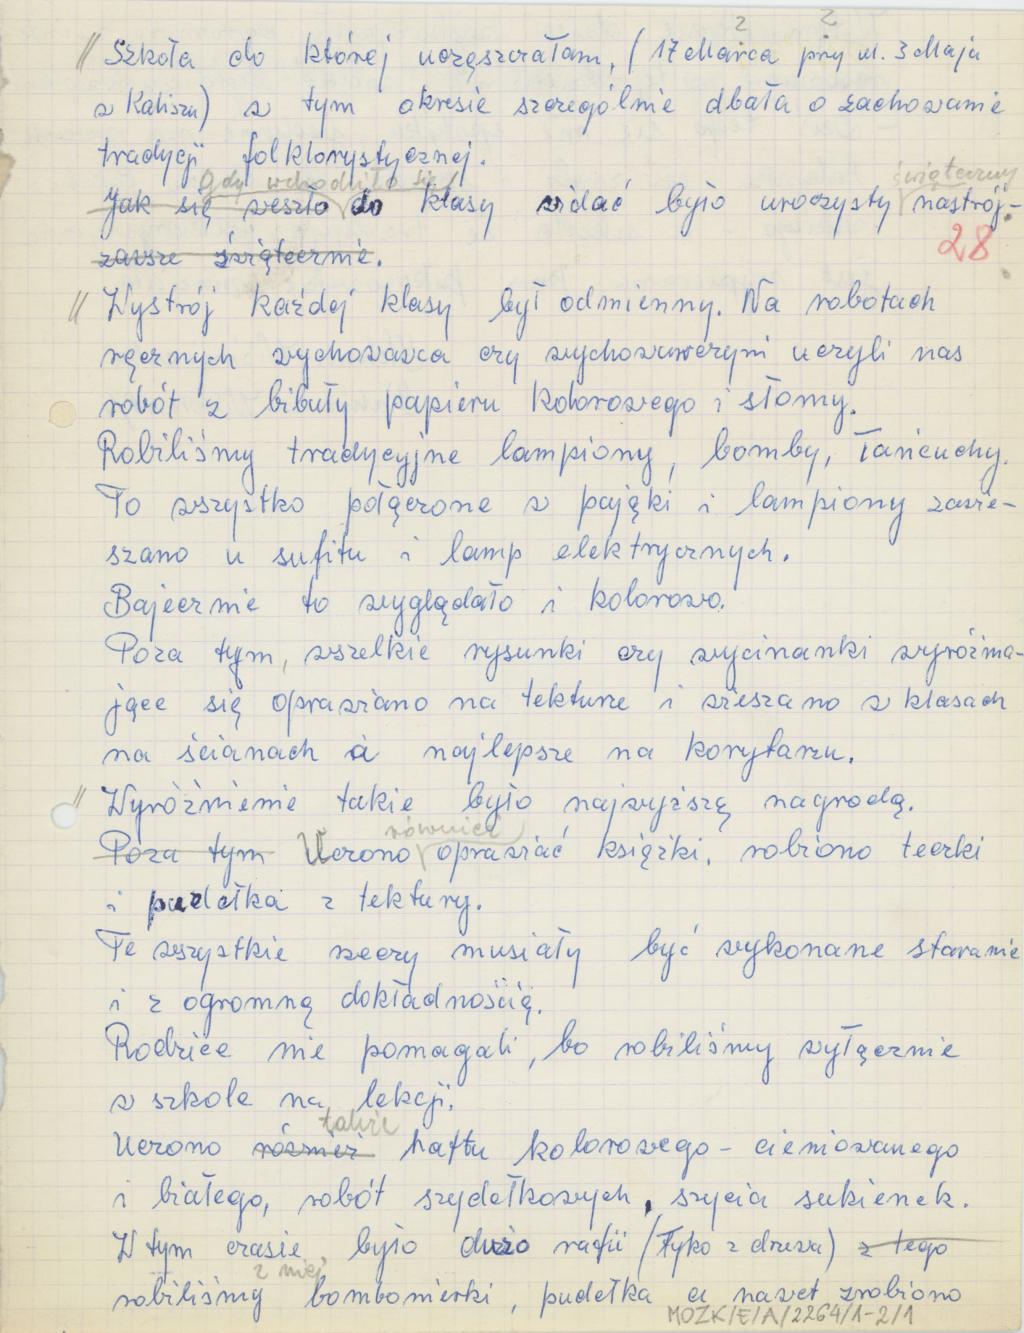 2 2
// Szkoła do której uczęszczałam, (17 Marca przy ul. 3 Maja
w Kaliszu) w tym okresie szczególnie dbała o zachowanie
tradycji folklorystycznej.
Gdy wchodziło się świąteczny
Jak się weszło do klasy widać było uroczysty nastrój-
zawsze świątecznie.
28
// Wystrój każdej klasy był odmienny. Na robotach
ręcznych wychowawca czy wychowawczyni uczyli nas
robót z bibuły papieru kolorowego i słomy.
Robiliśmy tradycyjne lampiony, bomby, łańcuchy.
To wszystko połączone w pająki i lampiony zawie-
szano u sufitu i lamp elektrycznych.
Bajecznie to wyglądało i kolorowo.
Poza tym, wszelkie rysunki czy wycinanki wyróżnia-
jące się oprawiano na tekturze i wieszano w klasach
na ścianach a najlepsze na korytarzu.
// Wyróżnienie takie było najwyższą nagrodą.
również
Poza tym Uczono oprawiać książki, robiono teczki
i pudełka z tektury.
Te wszystkie rzeczy musiały być wykonane staranie
i z ogromną dokładnością.
Rodzice nie pomagali, bo robiliśmy wyłącznie
w szkole na lekcji.
także
Uczono również haftu kolorowego - cieniowanego
i białego, robót szydełkowych, szycia sukienek.
W tym czasie było dużo rafii (Łyko z drzewa) z tego
z niej
robiliśmy bombonierki, pudełka a nawet zrobiono
MOZK/E/A/2264/1-2/1